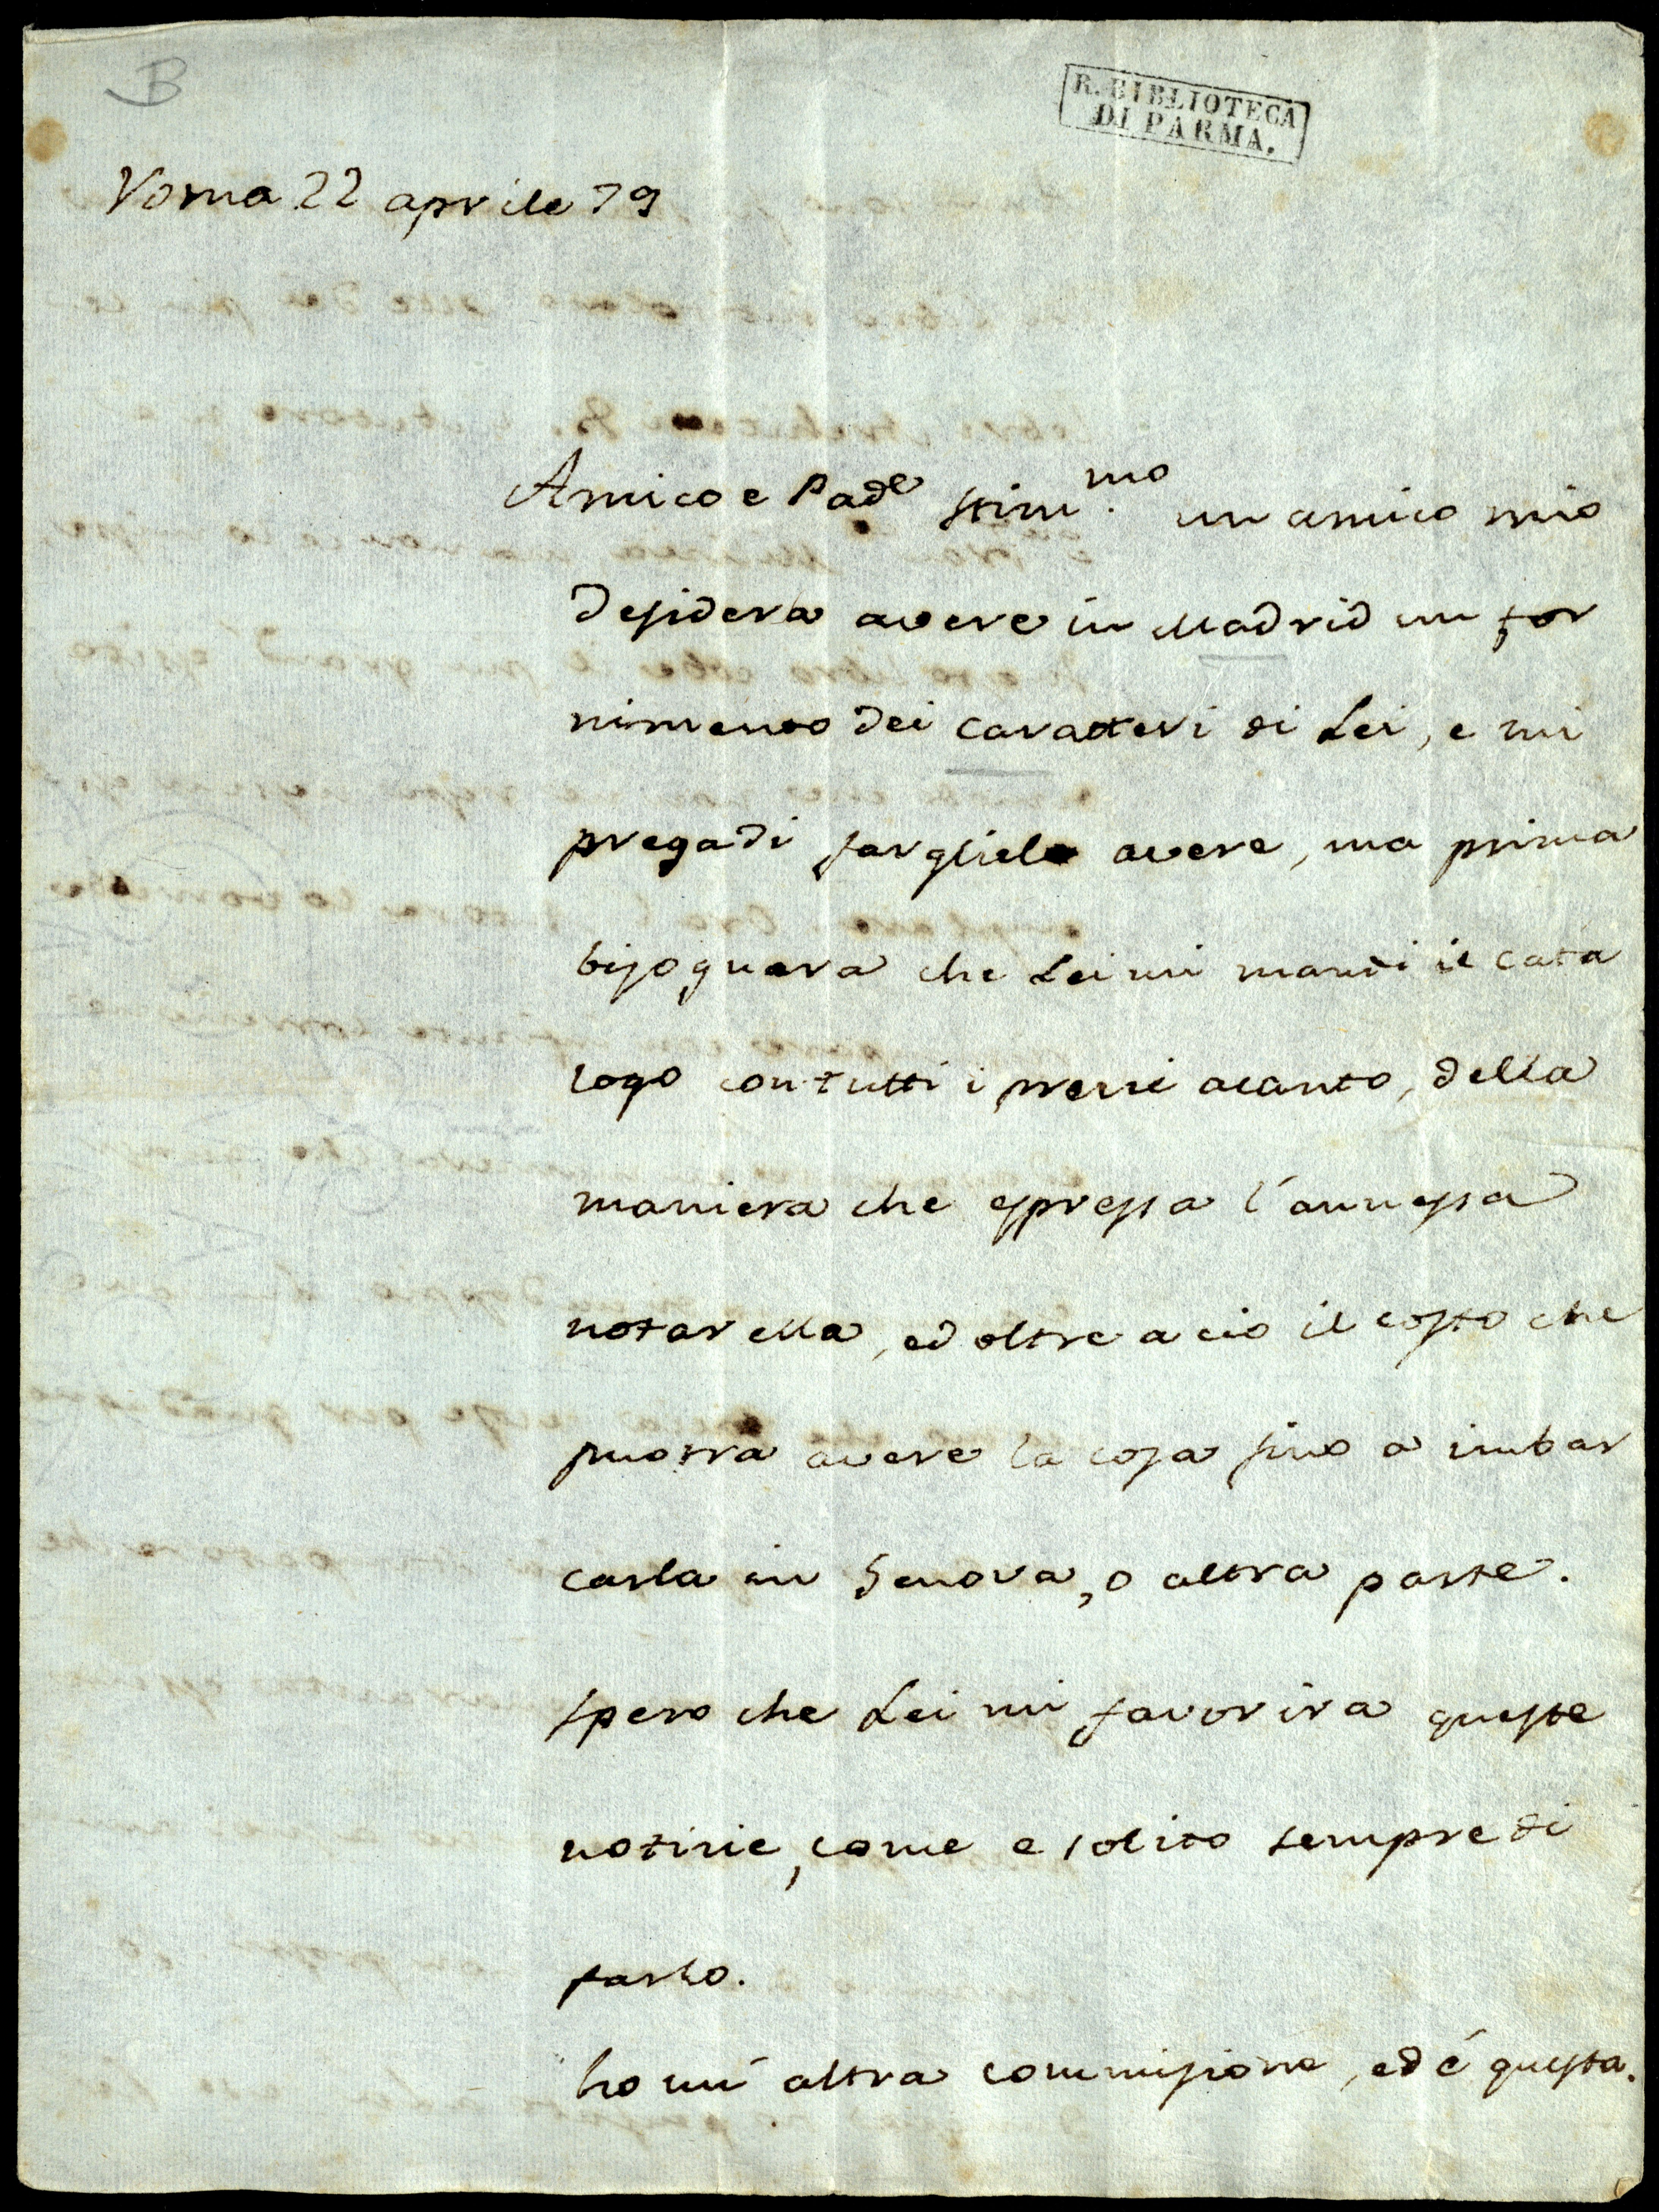 B
R. BIBLIOTECA
DI PARMA.
Roma 22 aprile 79
Amico e Pad.e stim.mo un amico mio
desidera avere in Madrid un for
nimento dei caratteri di Lei, e mi
prega di fargliele avere, ma prima
bisognera che Lei mi mandi il cata
logo con tutti i prezzi acanto, della
maniera che espressa l'annessa
notarella, ed oltre a cio il costo che
puotra avere la cosa fino a imbar
carla in Genova, o altra parte.
spero che Lei mi favorira queste
notizie, come e solito sempre di
farlo.
ho un' altra commisione, ed é questa.